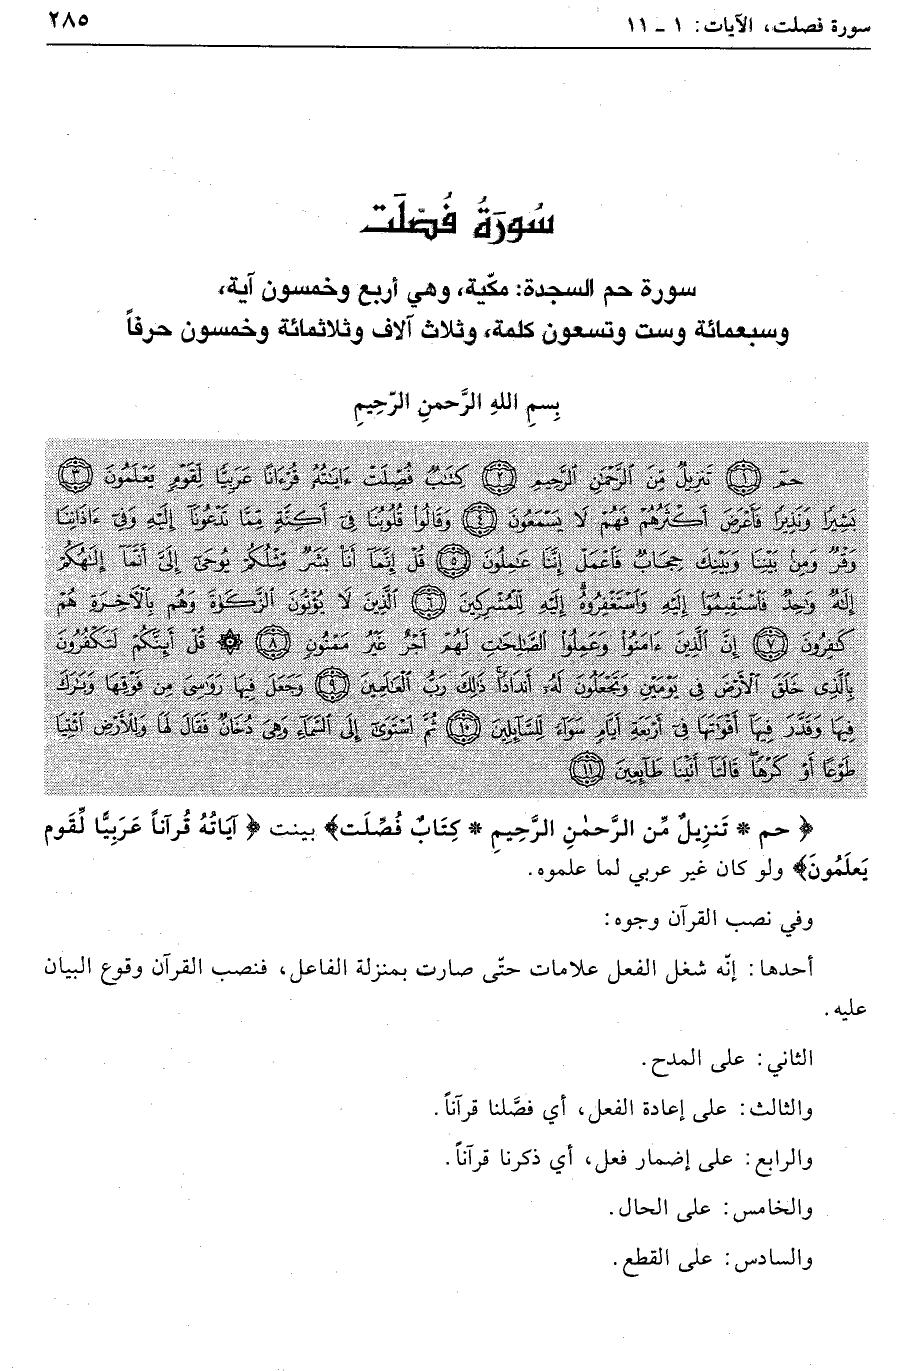 سورة فصلت، الآيات: ١ ـ ١١ ٢٨٥
سُورَةُ فُصِّلَت
سورة حم السجدة: مكّية، وهي أربع وخمسون آية،
وسبعمائة وست وتسعون كلمة، وثلاث آلاف وثلاثمائة وخمسون حرفاً
بِسمِ اللهِ الرَّحمنِ الرّحِيمِ
حمٓ ﴿١﴾ تَنزِيلٌ مِّنَ ٱلرَّحْمَٰنِ ٱلرَّحِيمِ ﴿٢﴾ كِتَٰبٌ فُصِّلَتْ ءَايَٰتُهُۥ قُرْءَانًا عَرَبِيًّا لِّقَوْمٍ يَعْلَمُونَ ﴿٣﴾
بَشِيرًا وَنَذِيرًا فَأَعْرَضَ أَكْثَرُهُمْ فَهُمْ لَا يَسْمَعُونَ ﴿٤﴾ وَقَالُوا۟ قُلُوبُنَا فِىٓ أَكِنَّةٍ مِّمَّا تَدْعُونَآ إِلَيْهِ وَفِىٓ ءَاذَانِنَا
وَقْرٌ وَمِنۢ بَيْنِنَا وَبَيْنِكَ حِجَابٌ فَٱعْمَلْ إِنَّنَا عَٰمِلُونَ ﴿٥﴾ قُلْ إِنَّمَآ أَنَا۠ بَشَرٌ مِّثْلُكُمْ يُوحَىٰٓ إِلَىَّ أَنَّمَآ إِلَٰهُكُمْ
إِلَٰهٌ وَٰحِدٌ فَٱسْتَقِيمُوٓا۟ إِلَيْهِ وَٱسْتَغْفِرُوهُ وَوَيْلٌ لِّلْمُشْرِكِينَ ﴿٦﴾ ٱلَّذِينَ لَا يُؤْتُونَ ٱلزَّكَوٰةَ وَهُم بِٱلْءَاخِرَةِ هُمْ
كَٰفِرُونَ ﴿٧﴾ إِنَّ ٱلَّذِينَ ءَامَنُوا۟ وَعَمِلُوا۟ ٱلصَّٰلِحَٰتِ لَهُمْ أَجْرٌ غَيْرُ مَمْنُونٍ ﴿٨﴾ ۞ قُلْ أَئِنَّكُمْ لَتَكْفُرُونَ
بِٱلَّذِى خَلَقَ ٱلْأَرْضَ فِى يَوْمَيْنِ وَتَجْعَلُونَ لَهُۥٓ أَندَادًا ذَٰلِكَ رَبُّ ٱلْعَٰلَمِينَ ﴿٩﴾ وَجَعَلَ فِيهَا رَوَٰسِىَ مِن فَوْقِهَا وَبَٰرَكَ
فِيهَا وَقَدَّرَ فِيهَآ أَقْوَٰتَهَا فِىٓ أَرْبَعَةِ أَيَّامٍ سَوَآءً لِّلسَّآئِلِينَ ﴿١٠﴾ ثُمَّ ٱسْتَوَىٰٓ إِلَى ٱلسَّمَآءِ وَهِىَ دُخَانٌ فَقَالَ لَهَا وَلِلْأَرْضِ ٱئْتِيَا
طَوْعًا أَوْ كَرْهًا قَالَتَآ أَتَيْنَا طَآئِعِينَ ﴿١١﴾
﴿ حم * تَنزِيلٌ مِّن الرَّحمٰنِ الرَّحِيمِ * كِتَابٌ فُصِّلَت﴾ بينت ﴿ آيَاتُهُ قُرآناً عَرَبِيًّا لِّقَوم
يَعلَمُونَ﴾ ولو كان غير عربي لما علموه.
وفي نصب القرآن وجوه:
أحدها: إنّه شغل الفعل علامات حتّى صارت بمنزلة الفاعل، فنصب القرآن وقوع البيان
عليه.
الثاني: على المدح.
والثالث: على إعادة الفعل، أي فصَّلنا قرآناً.
والرابع: على إضمار فعل، أي ذكرنا قرآناً.
والخامس: على الحال.
والسادس: على القطع.